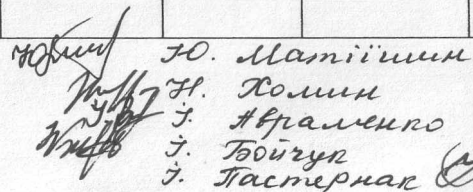 Ю. Матіїшин
Н. Хомин
І. Авраменко
І. Бойчук
І. Пастернак